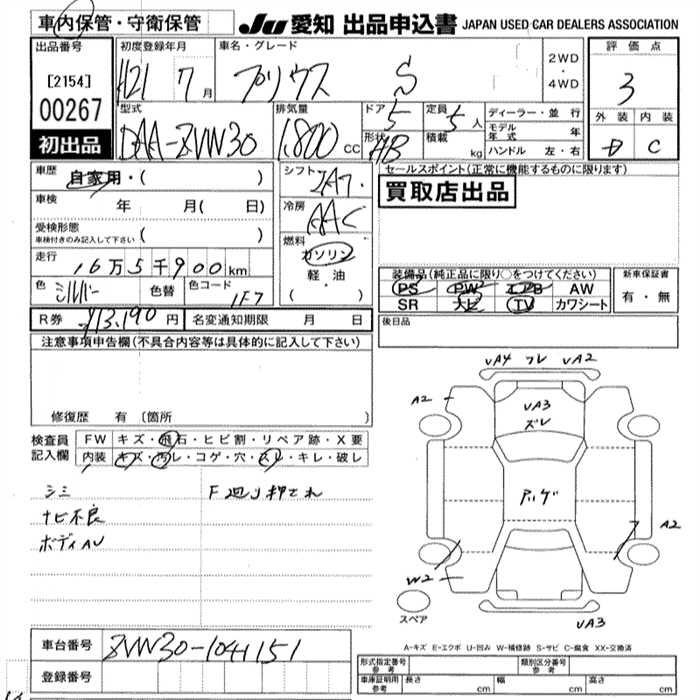 車内保管・守衛保管
JU 愛知 出品申込書 JAPAN USED CAR DEALERS ASSOCIATION
出品番号
[2154]
00267
初出品
初度登録年月
H21 7月
車名・グレード
プリウス S
2WD
・
4WD
評価点
3
外装 内装
D C
型式
DAA-ZVW30
排気量
1,800 cc
ドア
5
形状
HB
定員
5人
積載
kg
ディーラー・並行
モデル年式 年
ハンドル 左・右
車歴
自家用・( )
車検
年 月( 日)
受検形態
車検付きのみ記入して下さい ( )
走行
16万5千900km
色
シルバー
色替
色コード
1F7
シフト
冷房
AAC
燃料
ガソリン
軽油
( ・ )
セールスポイント(正常に機能するものに限ります)
買取店出品
装備品(純正品に限り○をつけてください)
PS PW エアB AW
SR ナビ TV カワシート
新車保証書
有・無
後日品
R券 ¥13,190円
名変通知期限 月 日
注意事項申告欄(不具合内容等は具体的に記入して下さい)
修復歴 有 〔箇所
検査員記入欄
FW キズ・飛石・ヒビ割・リペア跡・X要
内装 キズ・汚レ・コゲ・穴・スレ・キレ・破レ
シミ F廻り押され
ナビ不良
ボディAU
UA4 フレ UA2
A2
UA3
ズレ
ハゲ
A2
W2
スペア
UA3
A-キズ E-エクボ U-凹み W-補修跡 S-サビ C-腐食 XX-交換済
車台番号 ZVW30-1041151
登録番号
型式指定番号 参考
類別区分番号 参考
車庫証明用 参考 長さ cm 幅 cm 高さ cm